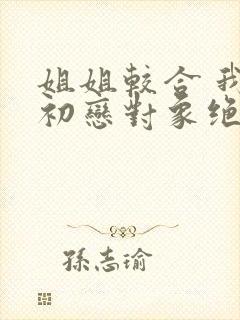 姐姐較合我
初戀對象絕
孫志瑜